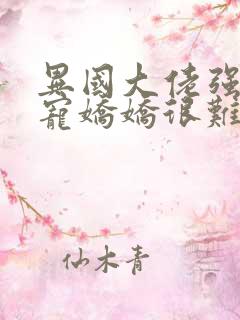 異國大佬强
寵嬌嬌很難
仙木青